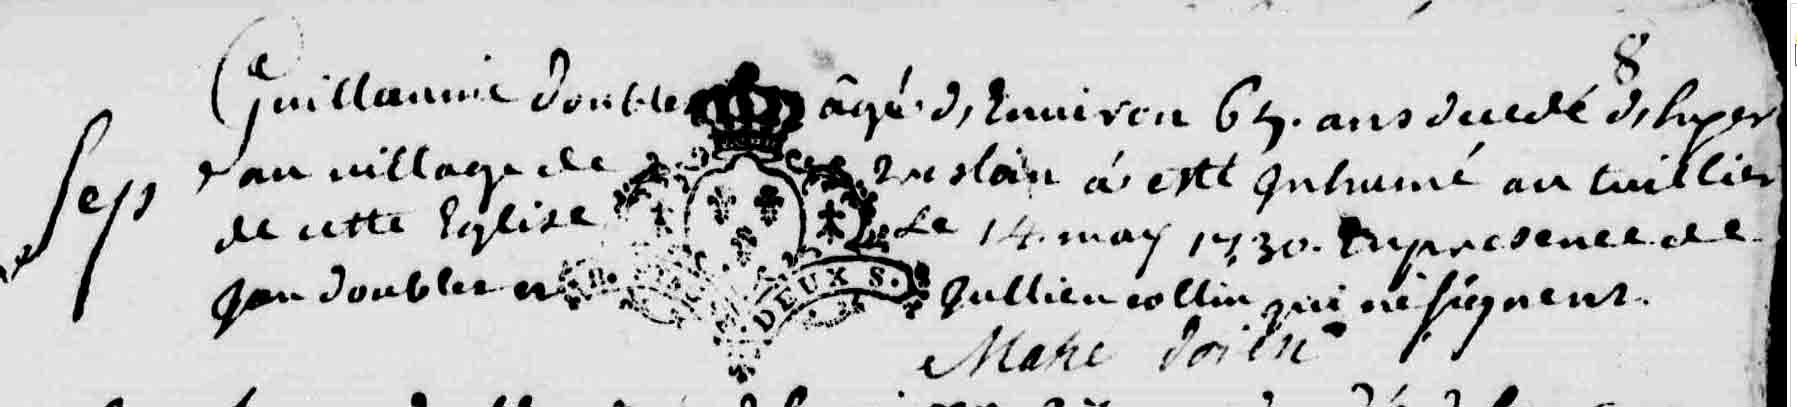 8
Guillaume doubler âgé d'Environ 65. ans decedé d'hyer
Sep au village de á esté Inhumé au
de cette Eglise Le 14. may 1730. En presence de
Jan doubler et Jullien collin qui ne signent.
DEUX S.
Mahé